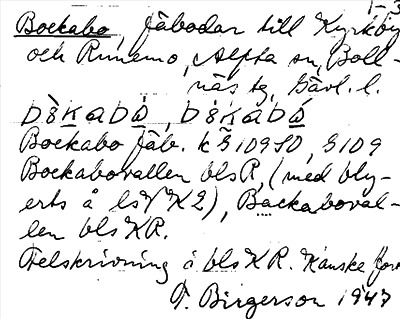 1-3
Bockabo, fäbodar till Kyrkby
och Runemo, Alfta sn, Boll-
näs tg, Gävl. l.
Bockabo fäb. k S 109 SO, S 109
Bockabovallen bls R, (med bly-
erts å ls V K2), Backaboval-
len bls KR.
Felskrivning å bls KR. Kanske for
F. Birgerson 1947